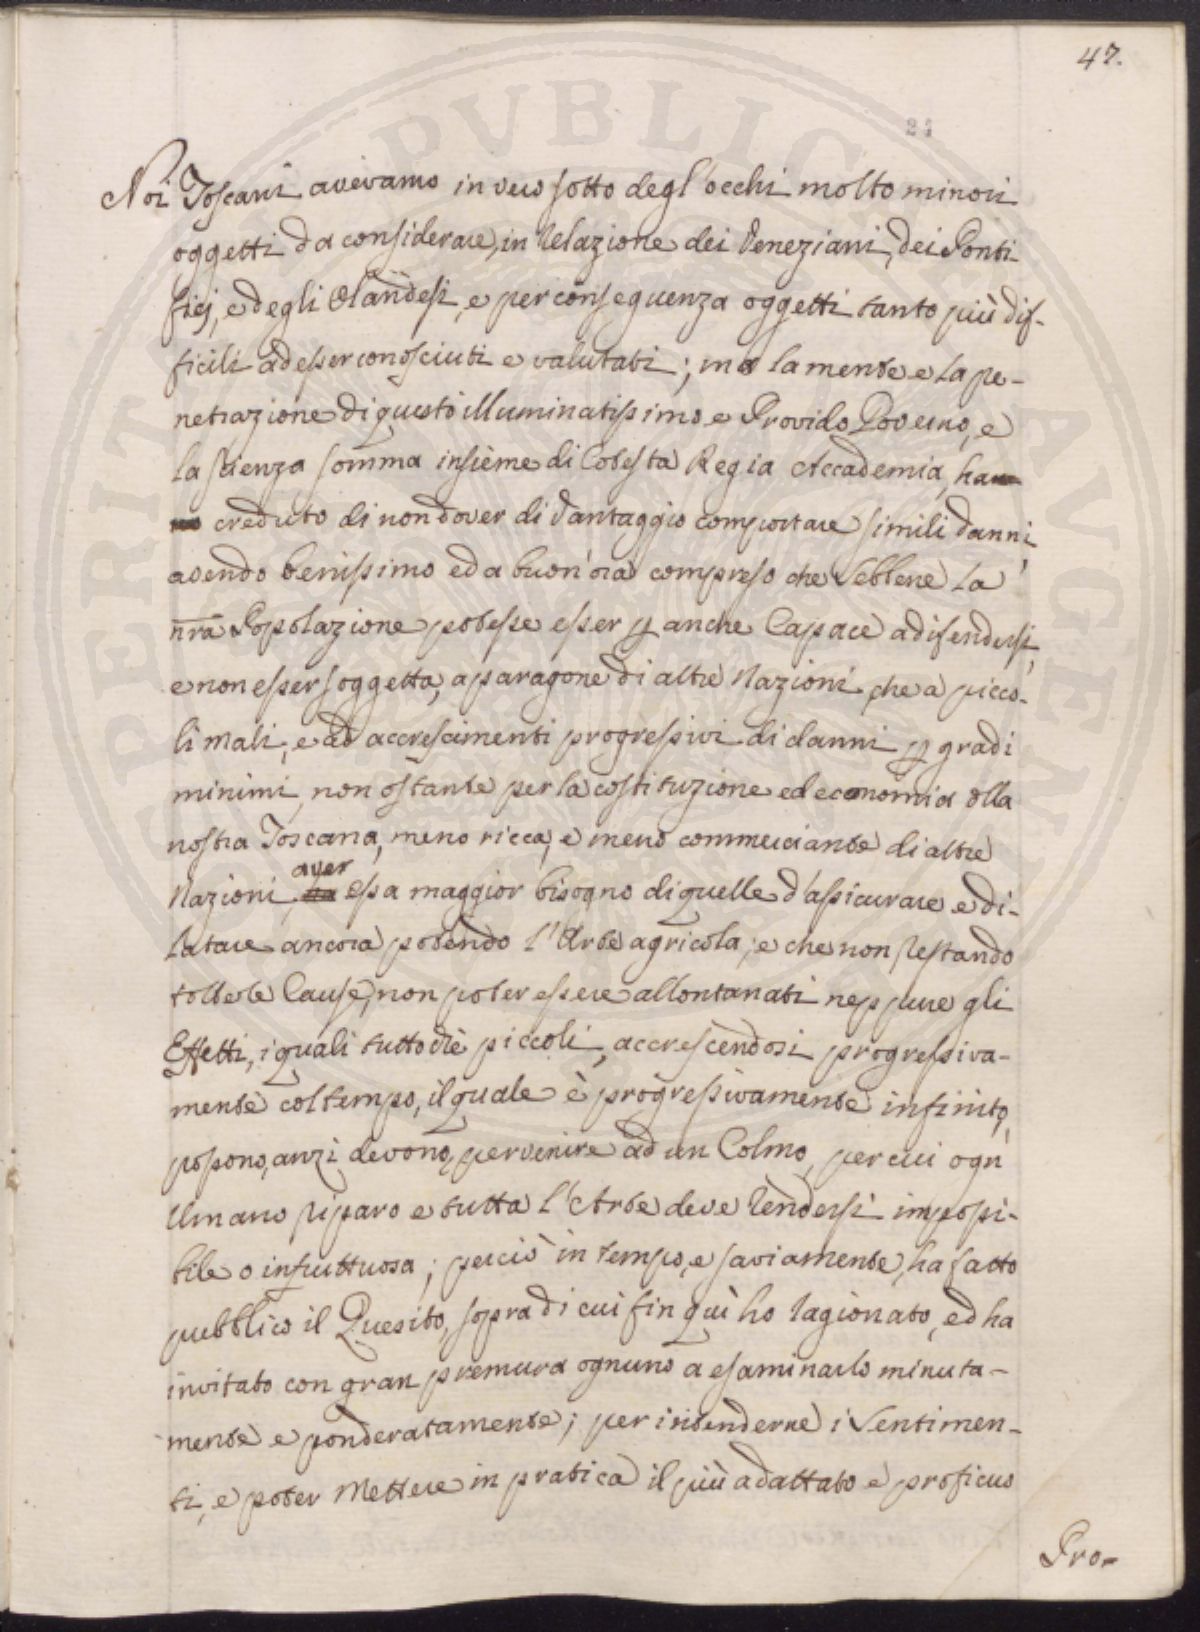 47.
24
Noi Toscani avevamo in vero sotto degl'occhi molto minori
oggetti da considerare, in relazione dei Veneziani, dei Ponti
ficj, e degli Olandesi, e per conseguenza oggetti tanto più dif-
ficili ad esser conosciuti e valutati; ma la mente e la pe-
netrazione di questo illuminatissimo e Provido Governo, e
la scienza somma insieme di Cotesta Regia Accademia, ha
creduto di non dover di vantaggio comportare simili danni,
avendo benissimo ed a buon'ora compreso che sebbene la
nrã Popolazione potesse esser p anche Capace a difendersi,
e non esser soggetta, a paragone di altre Nazioni che a picco-
li mali, e ad accrescimenti progressivi di danni p gradi
minimi, non ostante per la costituzione ed economia della
nostra Toscana, meno ricca, e meno commerciante di altre
Nazioni, aver essa maggior bisogno di quelle d'assicurare e di-
latare ancora potendo l'Arte agricola; e che non restando
tolte le Cause, non poter essere allontanati neppure gli
Effetti, i quali tuttodiè piccoli, accrescendosi progressiva-
mente col tempo, il quale è progressivamente infinito,
possono, anzi devono, pervenire ad un Colmo, per cui ogn
Umano riparo e tutta l'Arte deve rendersi impossi-
bile o infruttuosa; perciò in tempo, e saviamente, ha fatto
pubblico il Quesito, sopra di cui fin quì ho ragionato, ed ha
invitato con gran premura ognuno a esaminarlo minuta-
mente e ponderatamente; per intenderne i sentimen-
ti, e poter mettere in pratica il più adattato e proficuo
Pro-
PERITI PUBLICE AUGENT